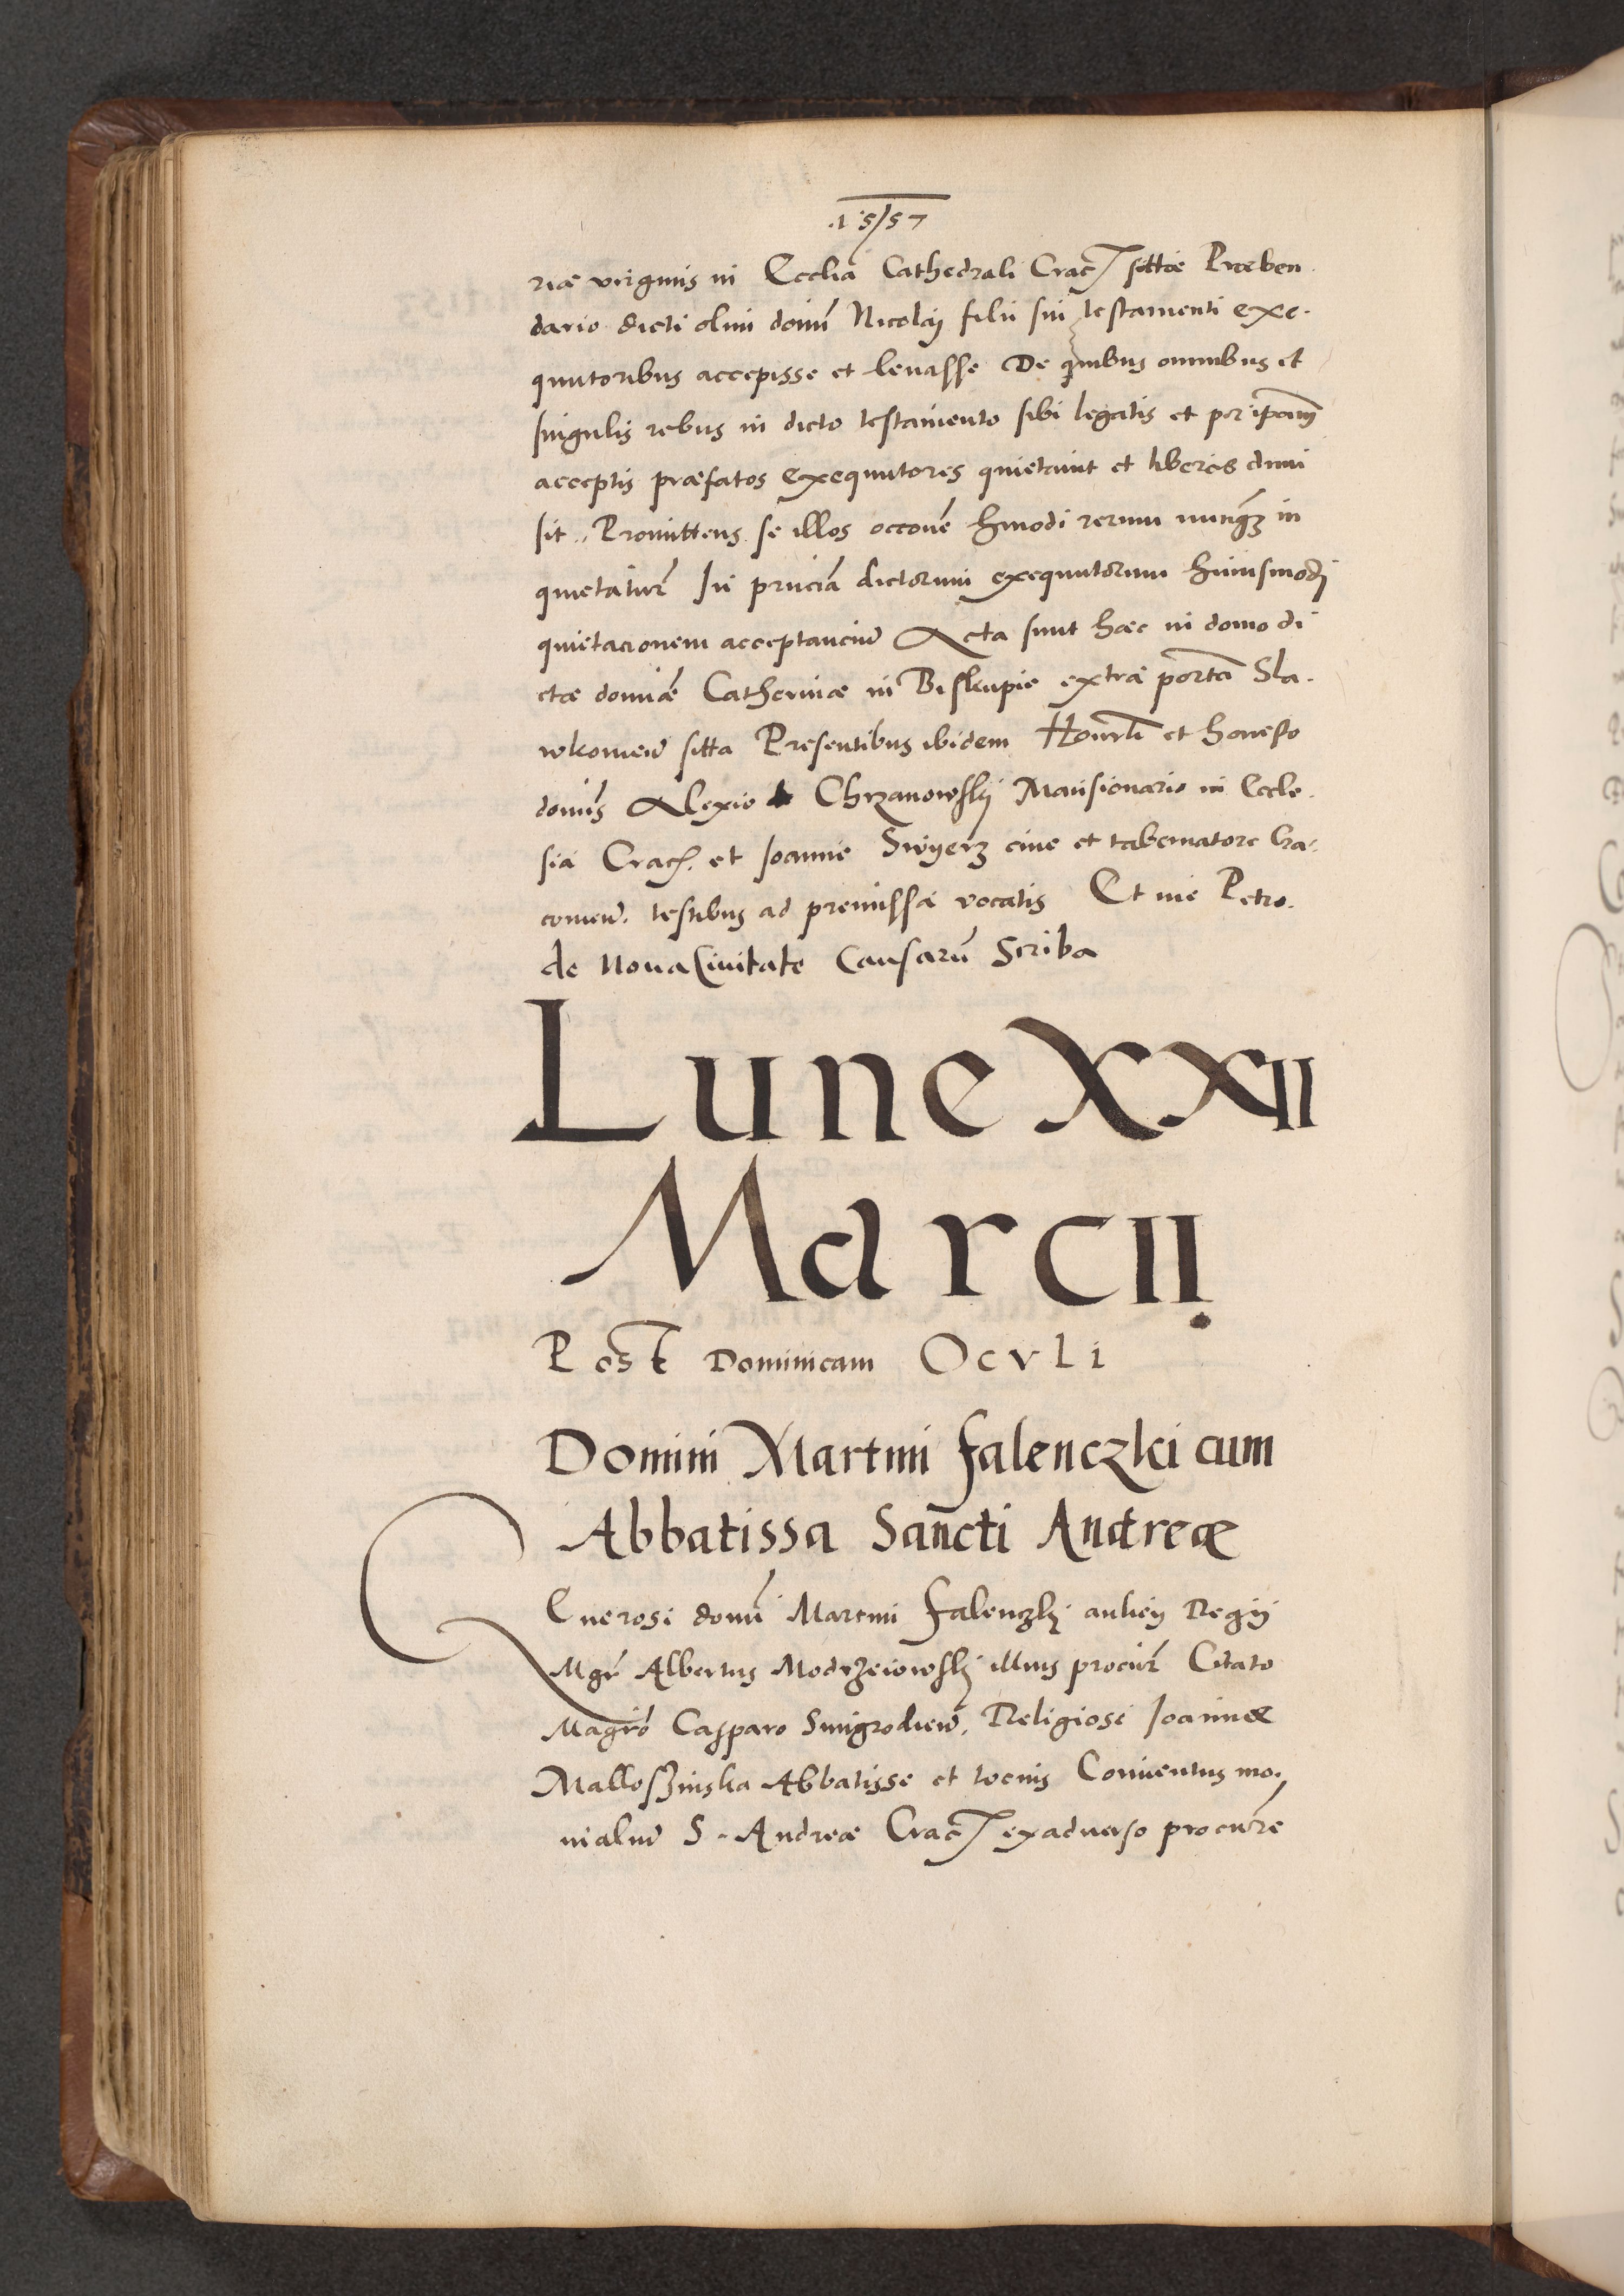 1557
riæ virginis in Ecclia Cathedrali Crac. sittæ Præben
dario dicti olim domi Nicolaij filii sui testamenti exe-
quutoribus accepisse et levasse De quibus omnibus et
singulis rebus in dicto testamento sibi legatis et per ipam
acceptis præfatos exequutores quietavit et liberos dimi
sit.. Promittens se illos occone hmodi rerum nunq3 in
quietatur In pnciã dictorum exequutorum huiusmodj
quietacionem acceptanciu Acta sunt hæc in domo di
ctæ domiæ Catherinæ in Biskupie extra porta Sla-
wkovien sitta Presentibus ibidem Honorli et honesto
domis Alexio de Chrzanowskij Mansionario in Eccle-
sia Crac. et Joanne Swyerz cive et tabernatore Cra-
covien. testibus ad premissa vocatis Et me Petro.
de Nova Civitate Causarũ Scriba
Lune XXII
Marcii
Post Dominicam Ocvli
Domini Martini Falenczki cum
Abbatissa Sancti Andreæ
Generosi domi Martini Falenczkj aulicij Regij
Mgr Albertus Modrzeiowskj illius procur Citato
Magro Casparo Smigrodien. Religiose Joannæ
Malloszinska Abbatisse et tocius Conventus mo-
nialiu S. Andreæ Crac. exadverso procure